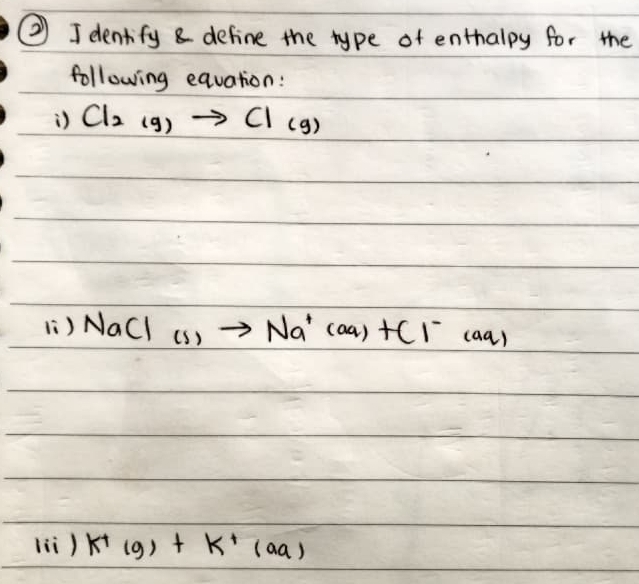 ② Identify & define the type of enthalpy for the
following equation:
i) Cl₂ (g) → Cl (g)
ii) NaCl (s) → Na⁺ (aq) + Cl⁻ (aq)
iii) K⁺ (g) + K⁺ (aq)